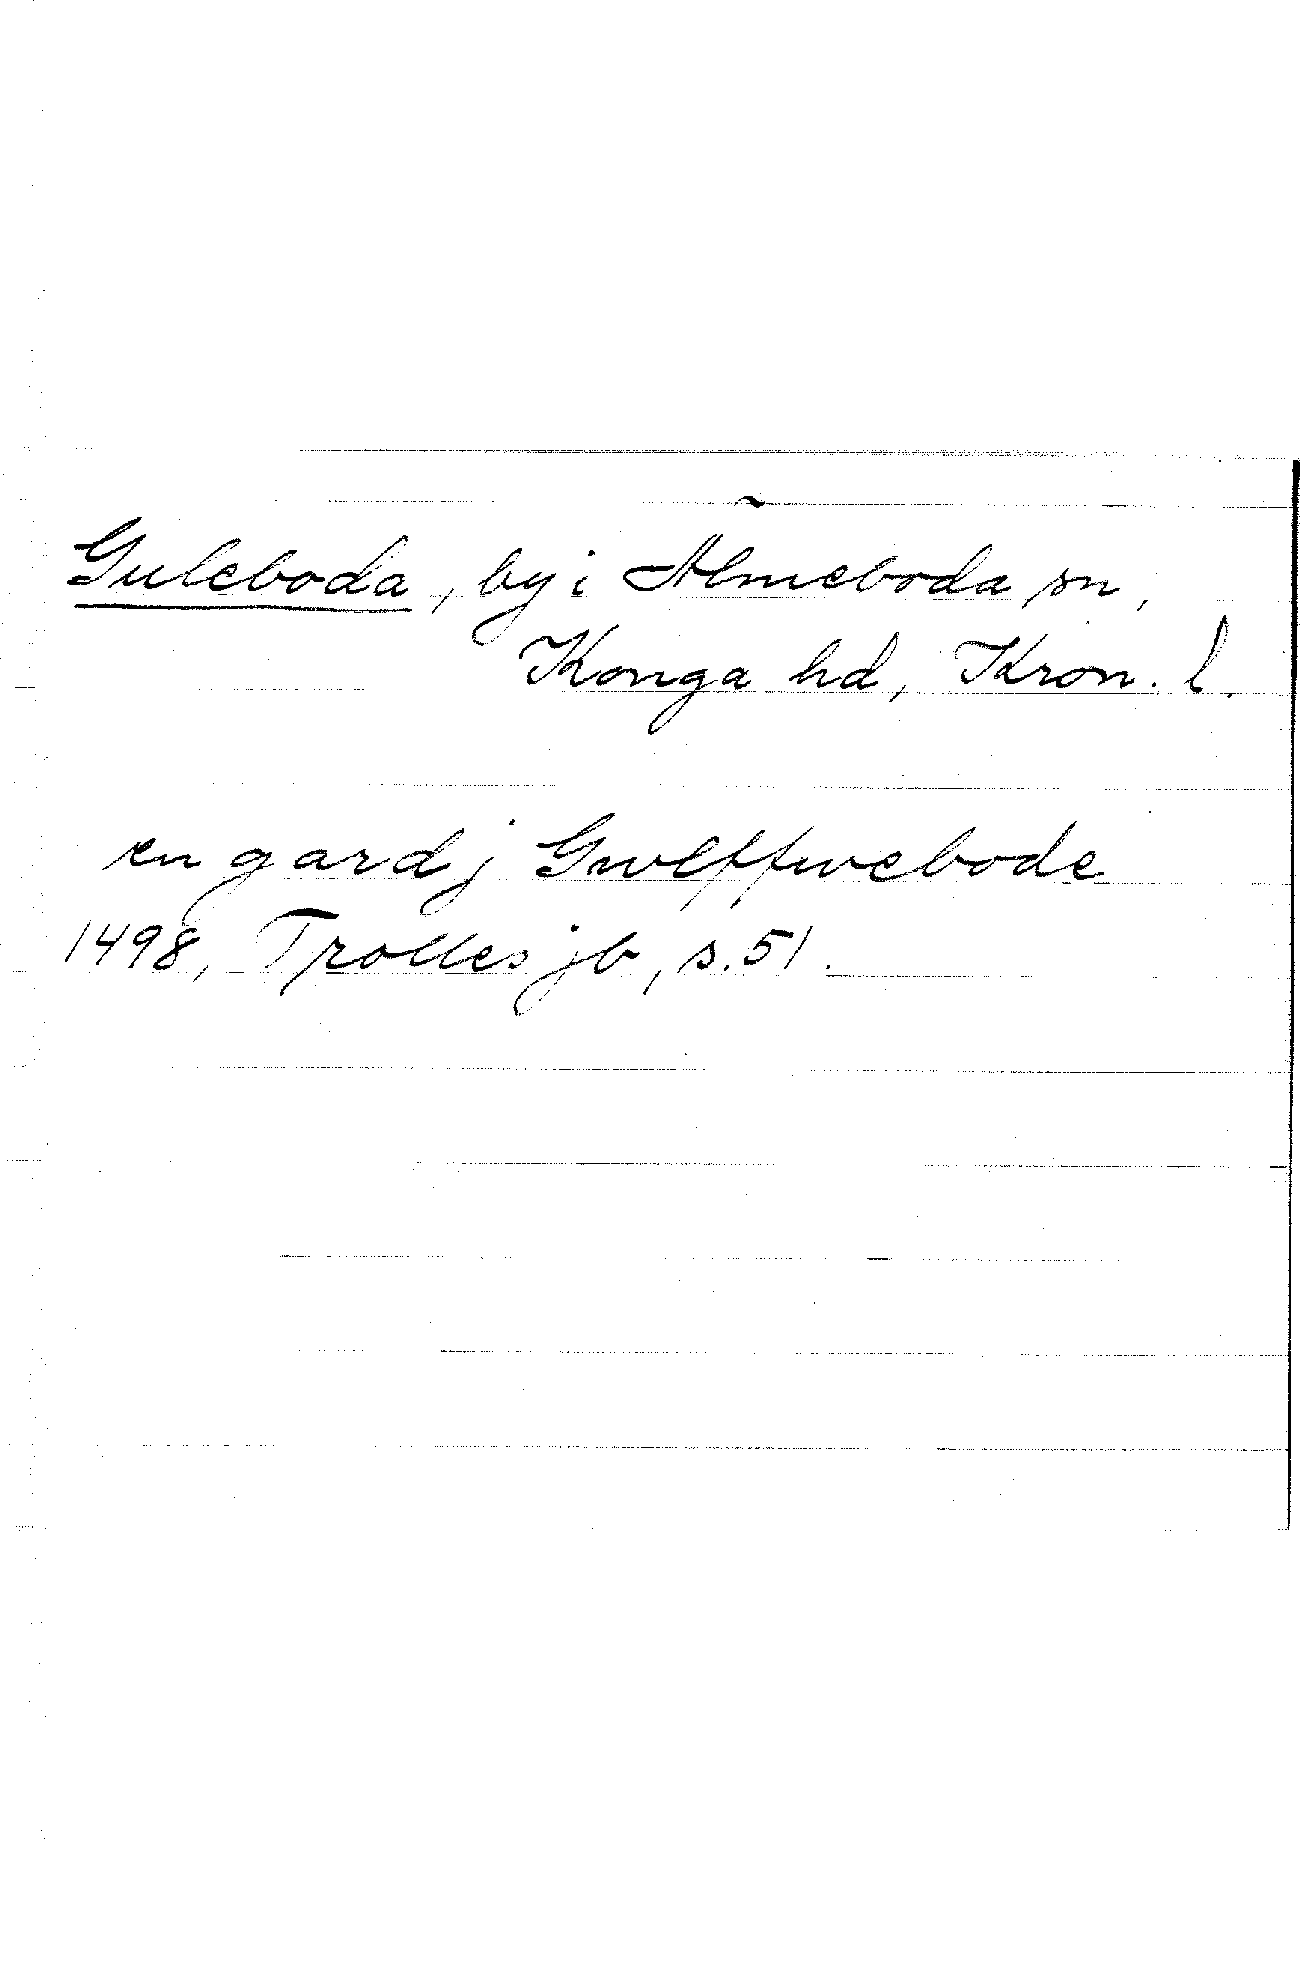 Guleboda, by i Älmeboda sn,
Konga hd, Kron. l.
en gard j Gwlffwebode
1498, Trolles jb, s. 51.